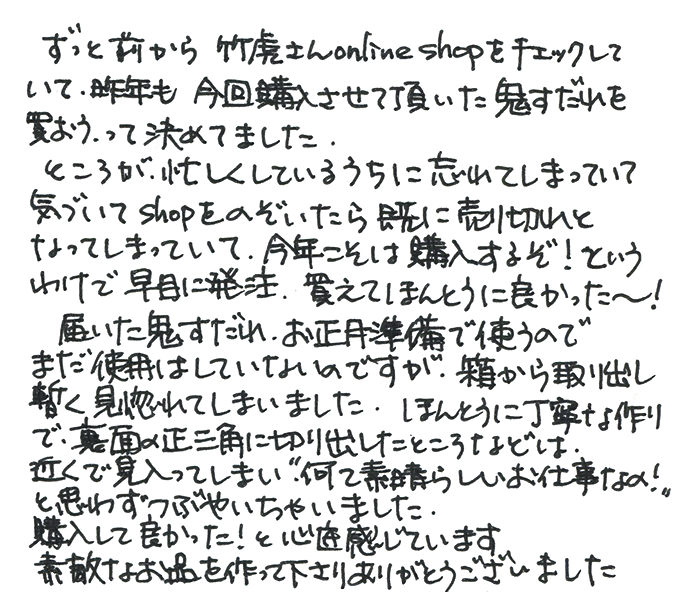 ずっと前から 竹虎さんonline shopをチェックして
いて、昨年も 今回購入させて頂いた鬼すだれを
買おう、って決めてました.
ところが、忙しくしているうちに忘れてしまっていて
気づいてshopをのぞいたら既に売り切れと
なってしまっていて、今年こそは購入するぞ!という
わけで早目に発注、買えてほんとうに良かった〜!
届いた鬼すだれ、お正月準備で使うので
まだ使用はしていないのですが、箱から取り出し
暫く見惚れてしまいました. ほんとうに丁寧な作り
で、裏面の正三角に切り出したところなどは、
近くで見入ってしまい“何て素晴らしいお仕事なの!”
と思わずつぶやいちゃいました.
購入して良かった!と心底感じています
素敵なお品を作って下さりありがとうございました